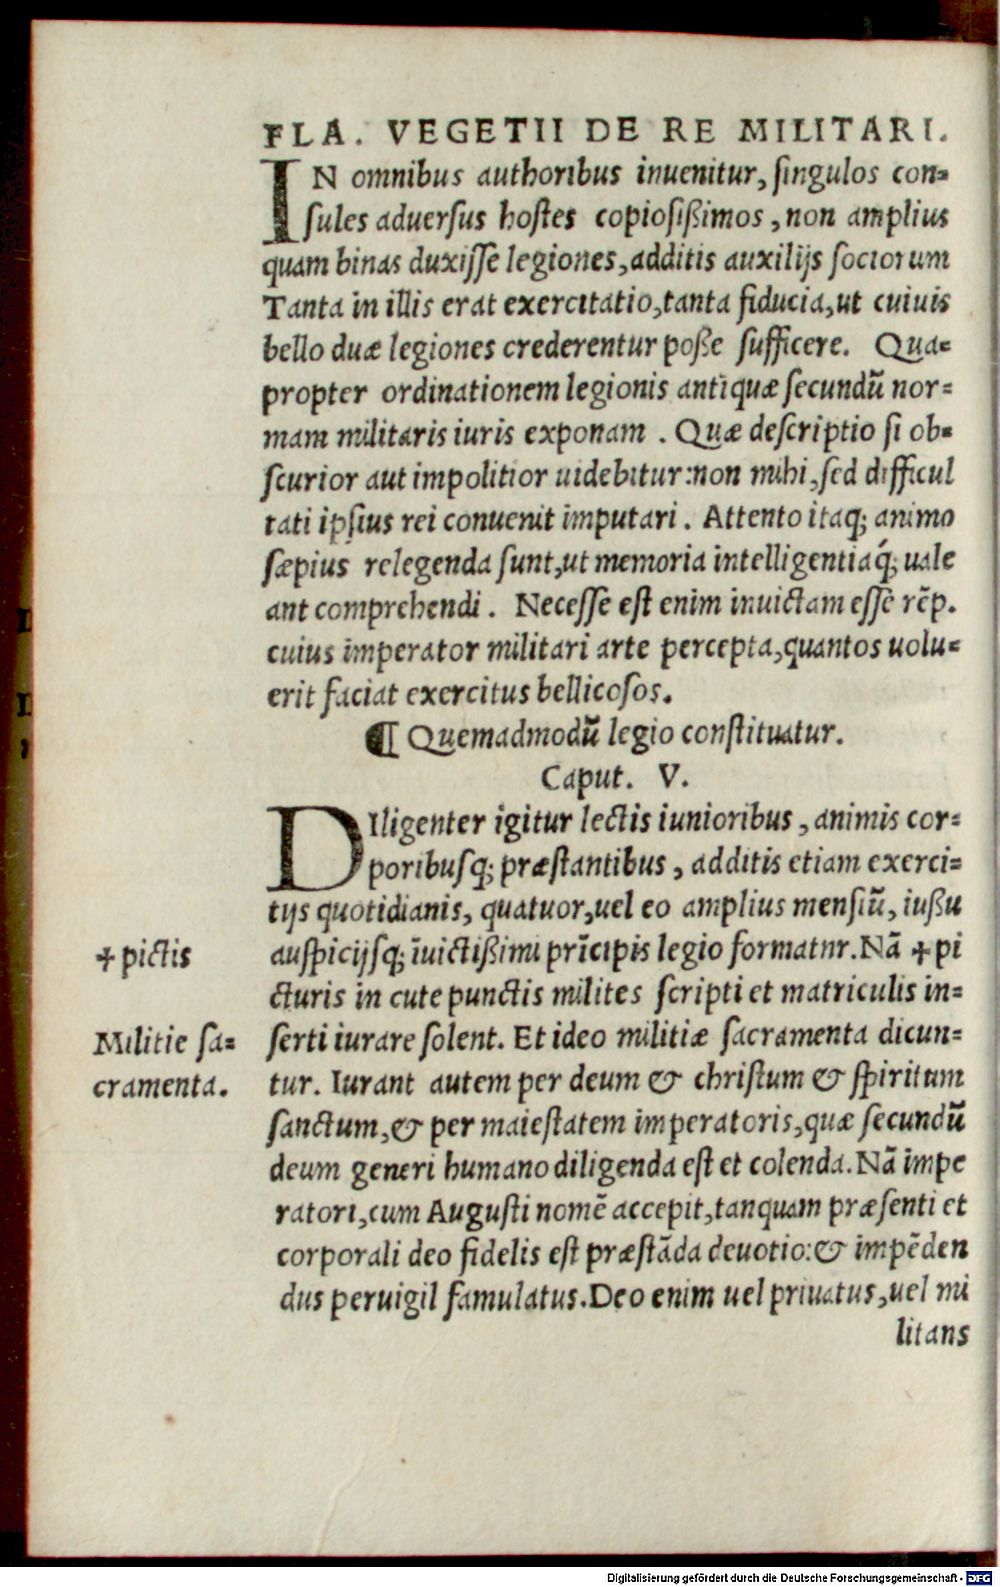 FLA. VEGETII DE RE MILITARI.
IN omnibus authoribus inuenitur, ſingulos con=
ſules aduerſus hoſtes copioſißimos, non amplius
quam binas duxiſſe legiones, additis auxilijs ſociorum
Tanta in illis erat exercitatio, tanta fiducia, ut cuiuis
bello duæ legiones crederentur poße ſufficere. Qua=
propter ordinationem legionis antiquæ ſecundũ nor=
mam militaris iuris exponam. Quæ deſcriptio ſi ob=
ſcurior aut impolitior uidebitur: non mihi, ſed difficul
tati ipſius rei conuenit imputari. Attento itaq; animo
ſæpius relegenda ſunt, ut memoria intelligentiaq́; uale
ant comprehendi. Neceſſe eſt enim inuictam eſſe rẽp.
cuius imperator militari arte percepta, quantos uolu=
erit faciat exercitus bellicoſos.
¶ Quemadmodũ legio conſtituatur.
Caput. V.
DIligenter igitur lectis iunioribus, animis cor=
poribuſq; præſtantibus, additis etiam exerci=
tijs quotidianis, quatuor, uel eo amplius menſiũ, iußu
✢ pictis
auſpicijſq; ĩuictißimi prĩcipis legio formatnr. Nã ✢ pi
cturis in cute punctis milites ſcripti et matriculis in=
Militie ſa=
cramenta.
ſerti iurare ſolent. Et ideo militiæ ſacramenta dicun=
tur. Iurant autem per deum & chriſtum & ſpiritum
ſanctum, & per maieſtatem imperatoris, quæ ſecundũ
deum generi humano diligenda eſt et colenda. Nã impe
ratori, cum Auguſti nomẽ accepit, tanquam præſenti et
corporali deo fidelis eſt præſtãda deuotio: & impẽden
dus peruigil famulatus. Deo enim uel priuatus, uel mi
litans
Digitalisierung gefördert durch die Deutsche Forschungsgemeinschaft - DFG